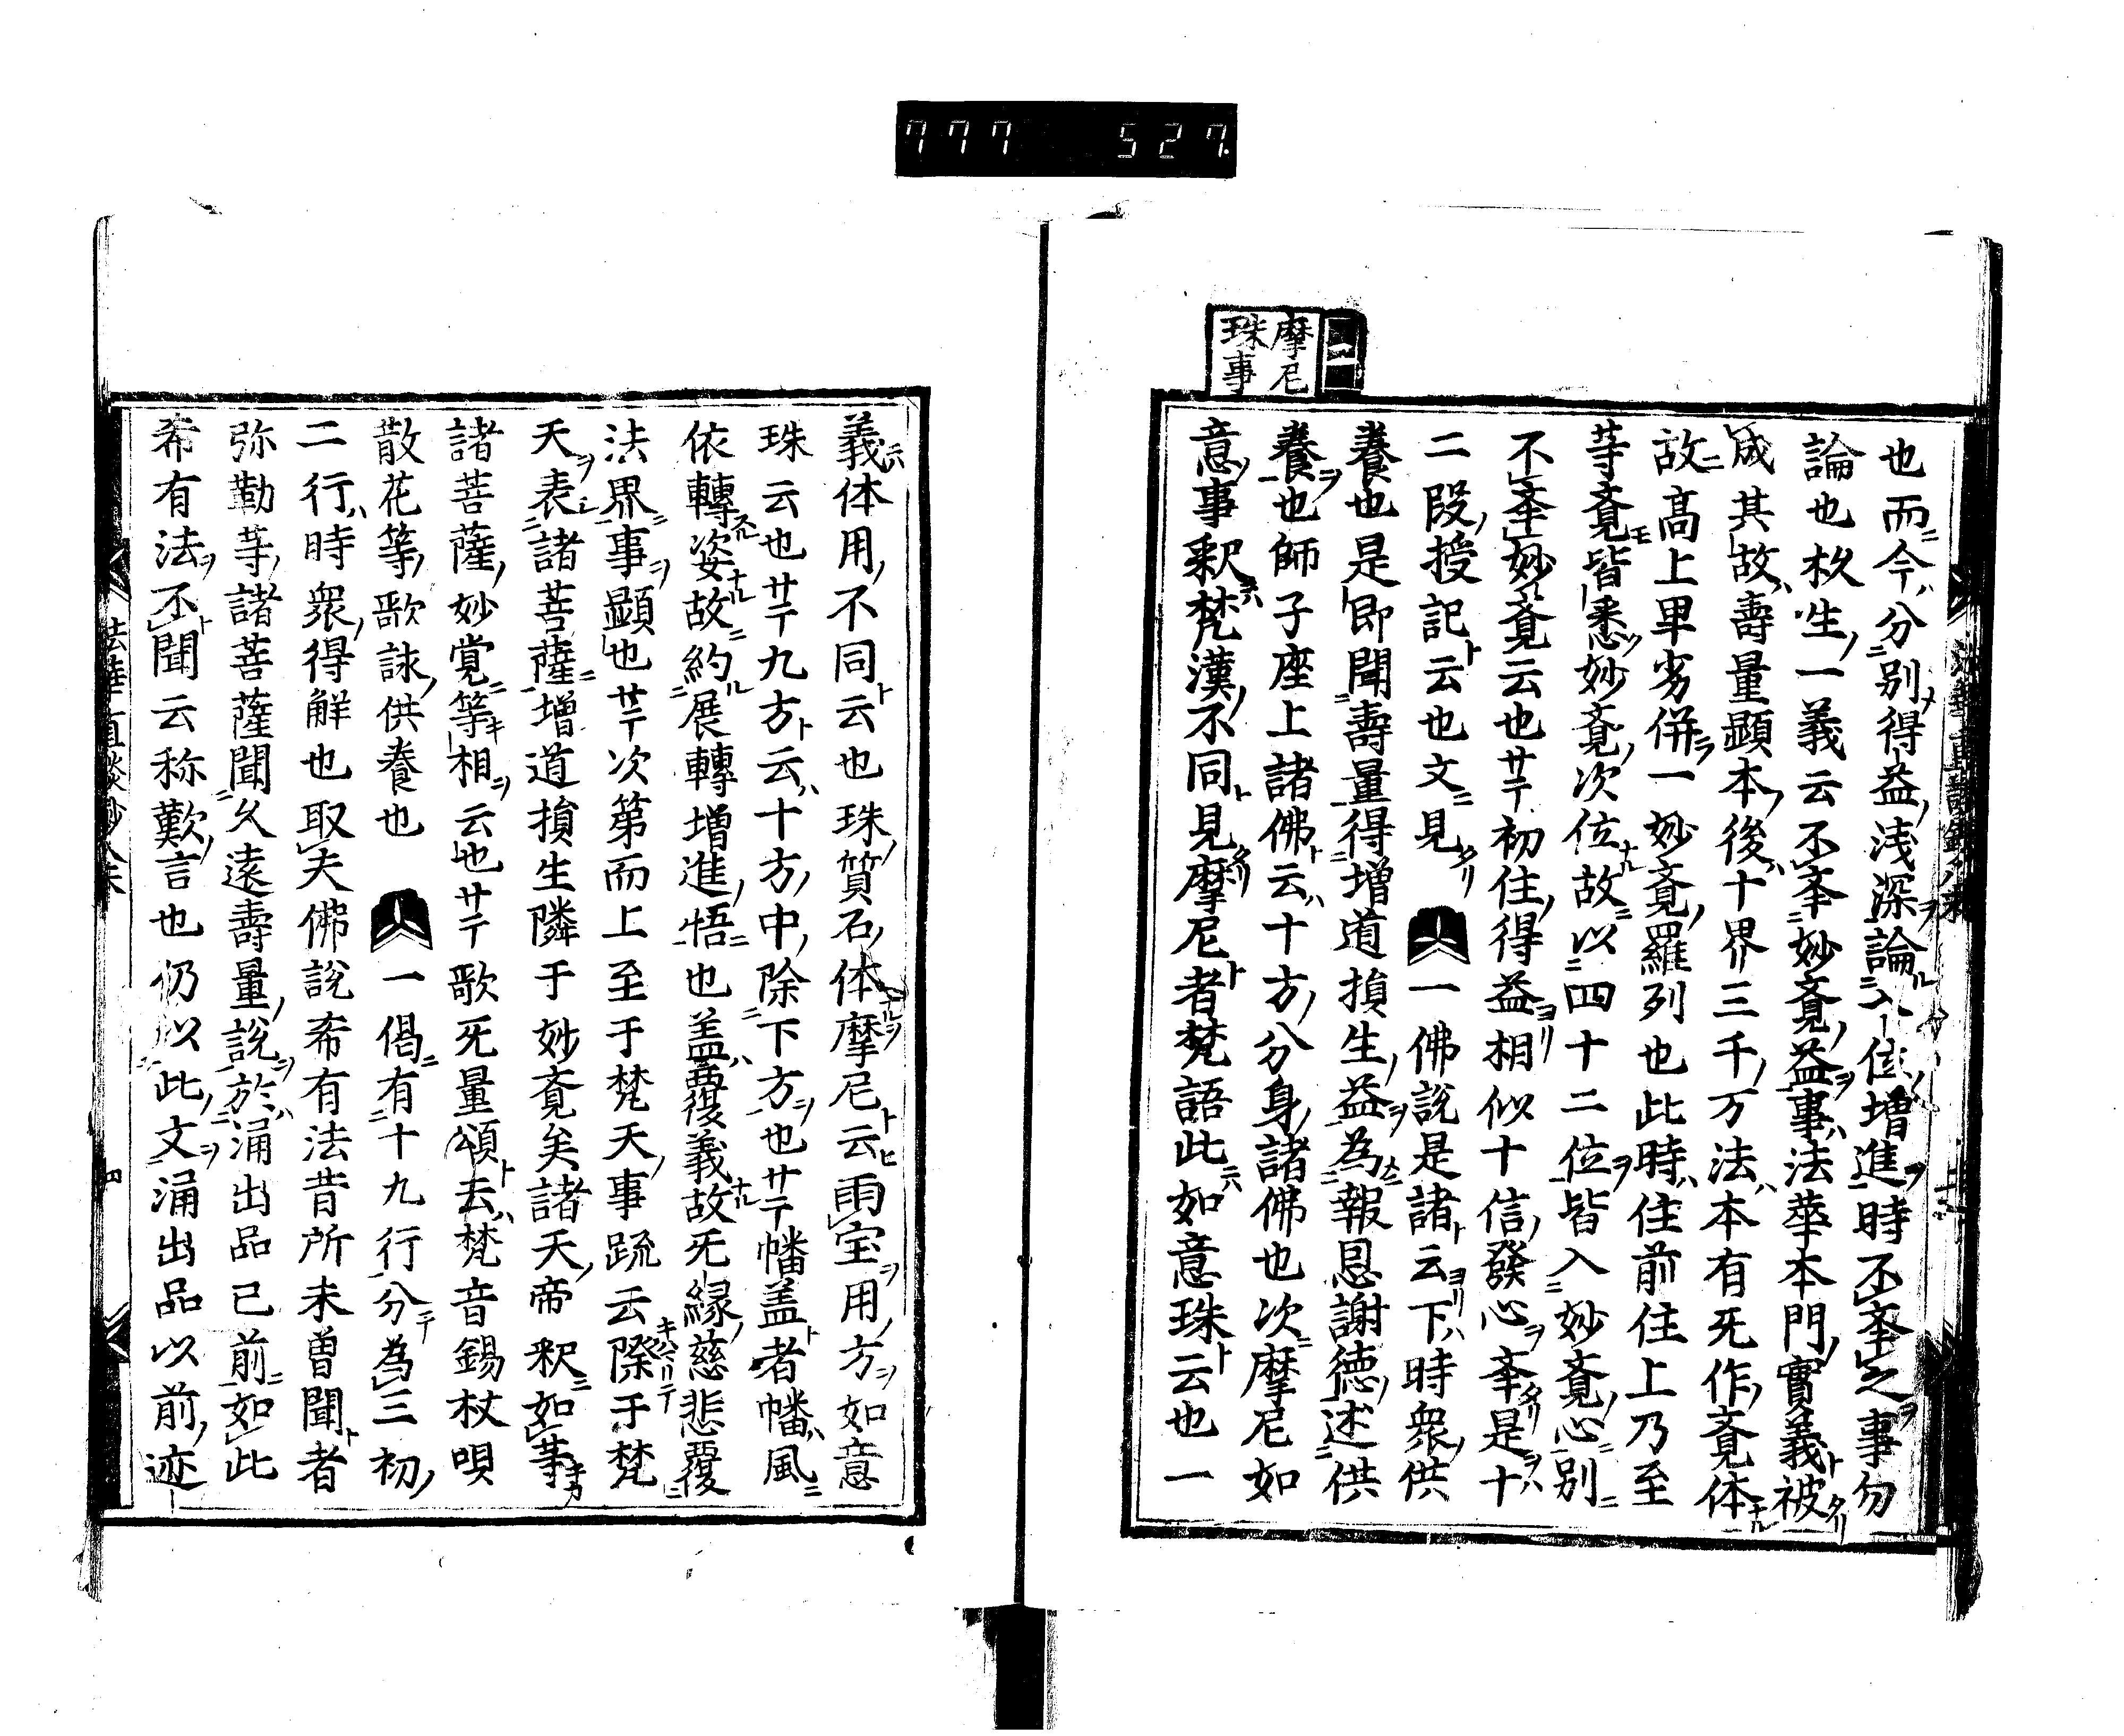 777 527
摩尼
珠事
也而今分別得益浅深論位増進時不至之事勿
論也杦生一義云不至妙覔益事法華本門實義被
成其故壽量顕本後十界三千万法本有無作覔体
故高上卑劣併一妙覔羅列也此時住前住上乃至
等覔皆悉妙覔次位故以四十二位皆入妙覔心別
不至妙覔云也廿二初住得益相似十信發心至是十
二段授記云也文見 一佛說是諸云下時衆供
養也是即聞壽量得増道損生益為報恩謝徳述供
養也師子座上諸佛云十方分身諸佛也次摩尼如
意事釈梵漢不同見摩尼者梵語此如意珠云也一
義体用不同云也珠質石体摩尼云雨宝用方如意
珠云也廿二九方云十方中除下方也廿二幡盖者幡風
依轉姿故約展轉増進悟也盖覆義故無縁慈悲覆
法界事顕也廿二次第而上至于梵天事疏云際于梵
天表諸菩薩増道損生隣于妙覔矣諸天帝釈如等
諸菩薩妙覚等相云也廿二歌無量頌去梵音錫杖唄
散花等歌詠供養也 一偈有十九行分為三初
二行時衆得解也取夫佛説希有法昔所未曽聞者
弥勒等諸菩薩聞久遠壽量説於涌出品已前如此
希有法不聞云称歎言也仍以此文涌出品以前迹
法華直談鈔八末 四